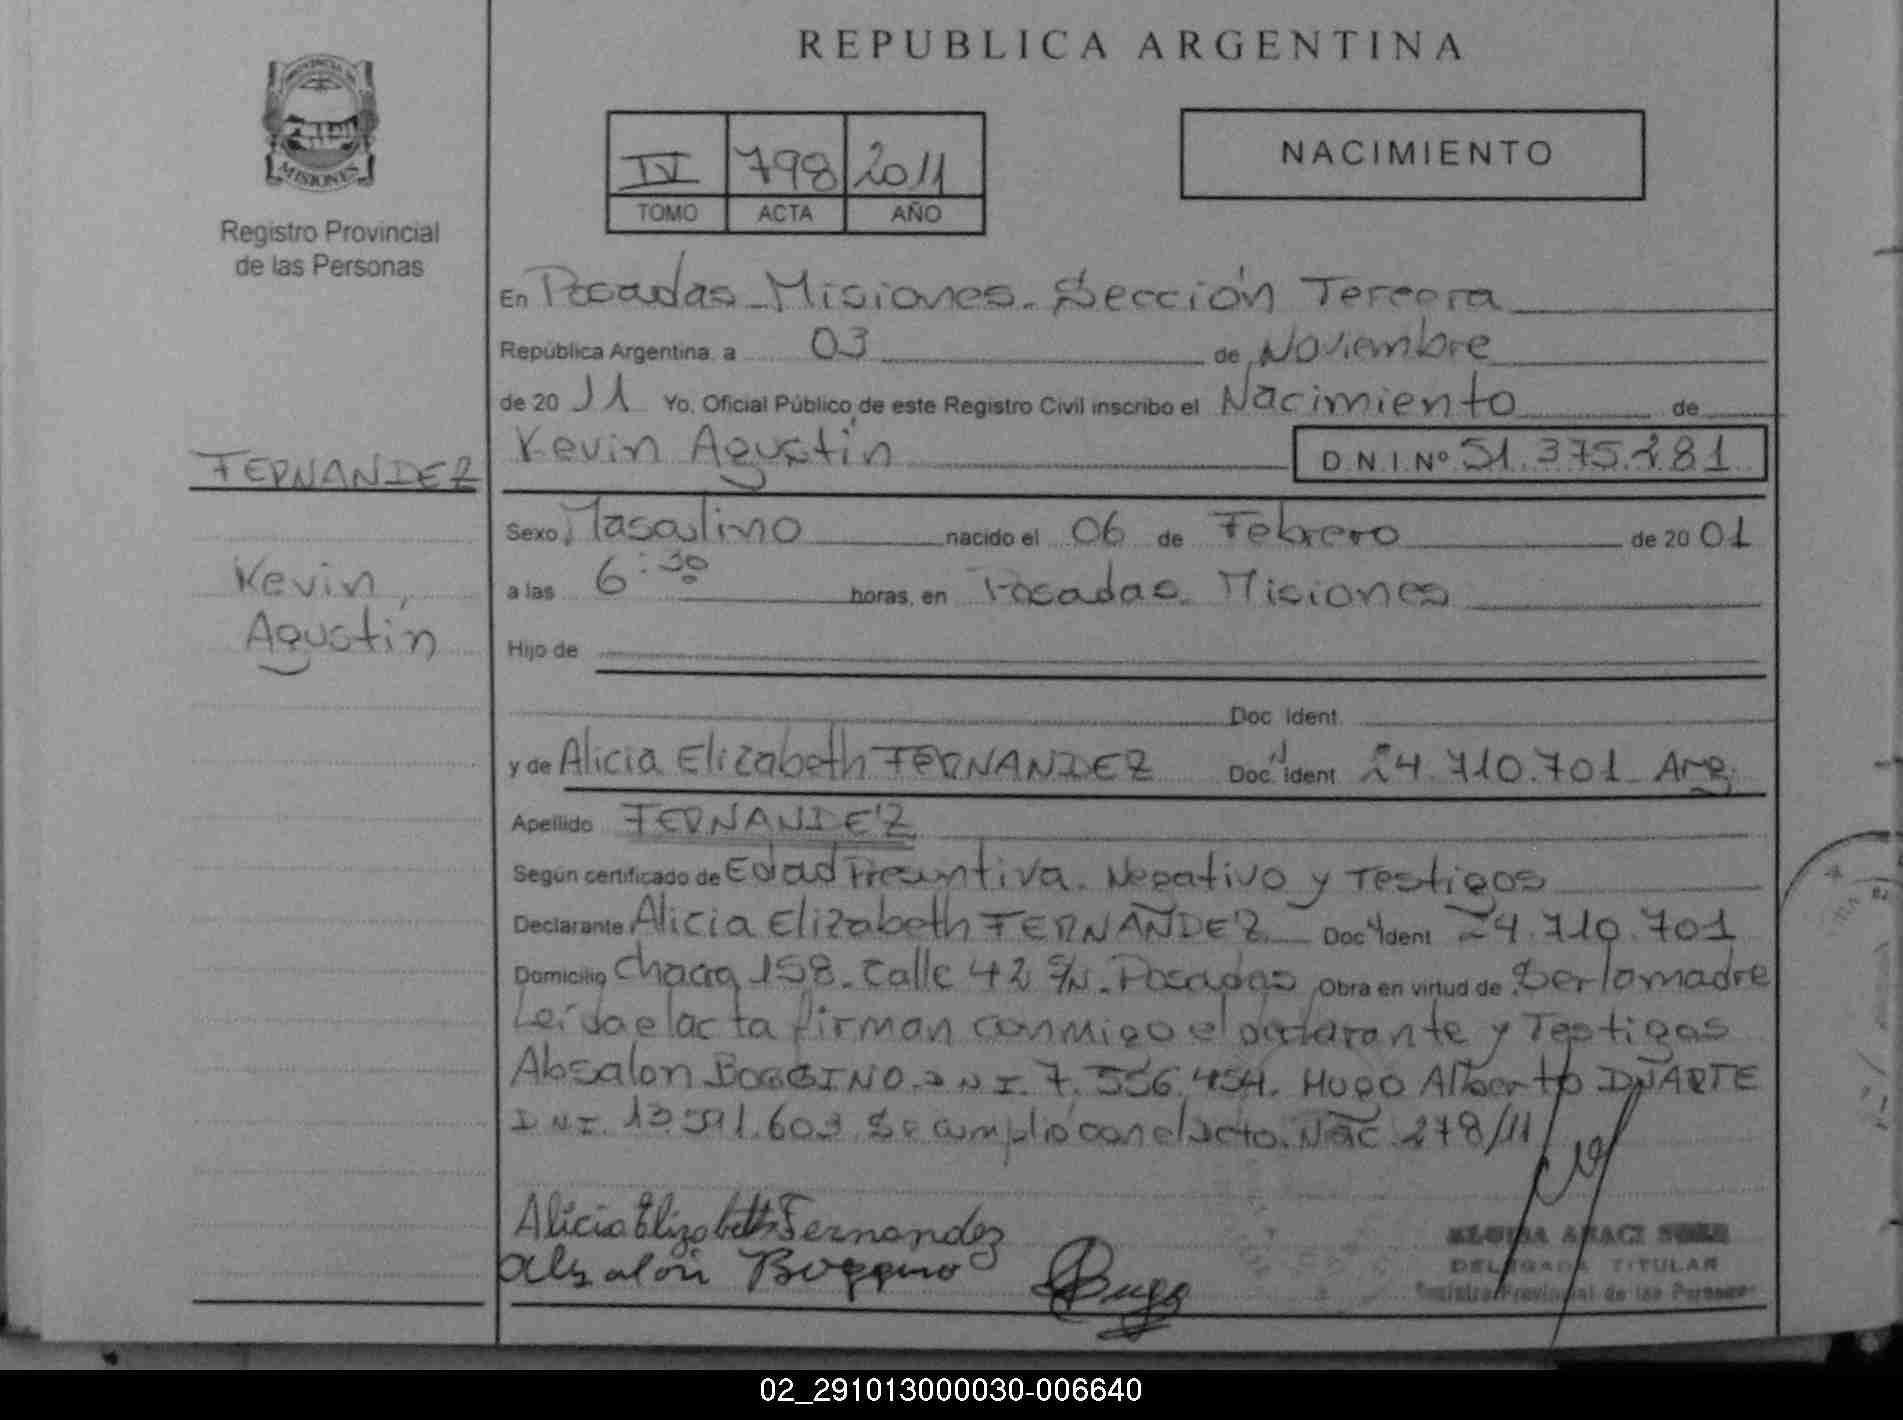 REPUBLICA ARGENTINA
PROVINCIA DE
MISIONES
Registro Provincial
de las Personas
IV 798 2011
TOMO ACTA AÑO
NACIMIENTO
En Posadas - Misiones. Sección Tercera
República Argentina, a 03 de Noviembre
de 2011 Yo, Oficial Público de este Registro Civil inscribo el Nacimiento de
Kevin Agustín D.N.I.Nº 51.375.281
FERNANDEZ
Kevin,
Agustín
Sexo Masculino nacido el 06 de Febrero de 2001
a las 6:30 horas, en Posadas. Misiones
Hijo de
Doc. Ident.
y de Alicia Elizabeth FERNANDEZ Doc. Ident 24.710.701 Arg.
Apellido FERNANDEZ
Según certificado de Edad Presuntiva. Negativo y Testigos
Declarante Alicia Elizabeth FERNANDEZ Doc. Ident 24.710.701
Domicilio Chacra 158. Calle 42 S/N. Posadas Obra en virtud de Ser la madre
Leída el acta firman conmigo el declarante y Testigos
Absalon BOGGINO. DNI. 7.556.454. Hugo Alberto DUARTE
DNI. 13.591.603. Se cumplió con el acto. Nac. 278/11
Alicia Elizabeth Fernandez
Absalón Boggino
DELEGADA TITULAR
Registro Provincial de las Personas
02_291013000030-006640